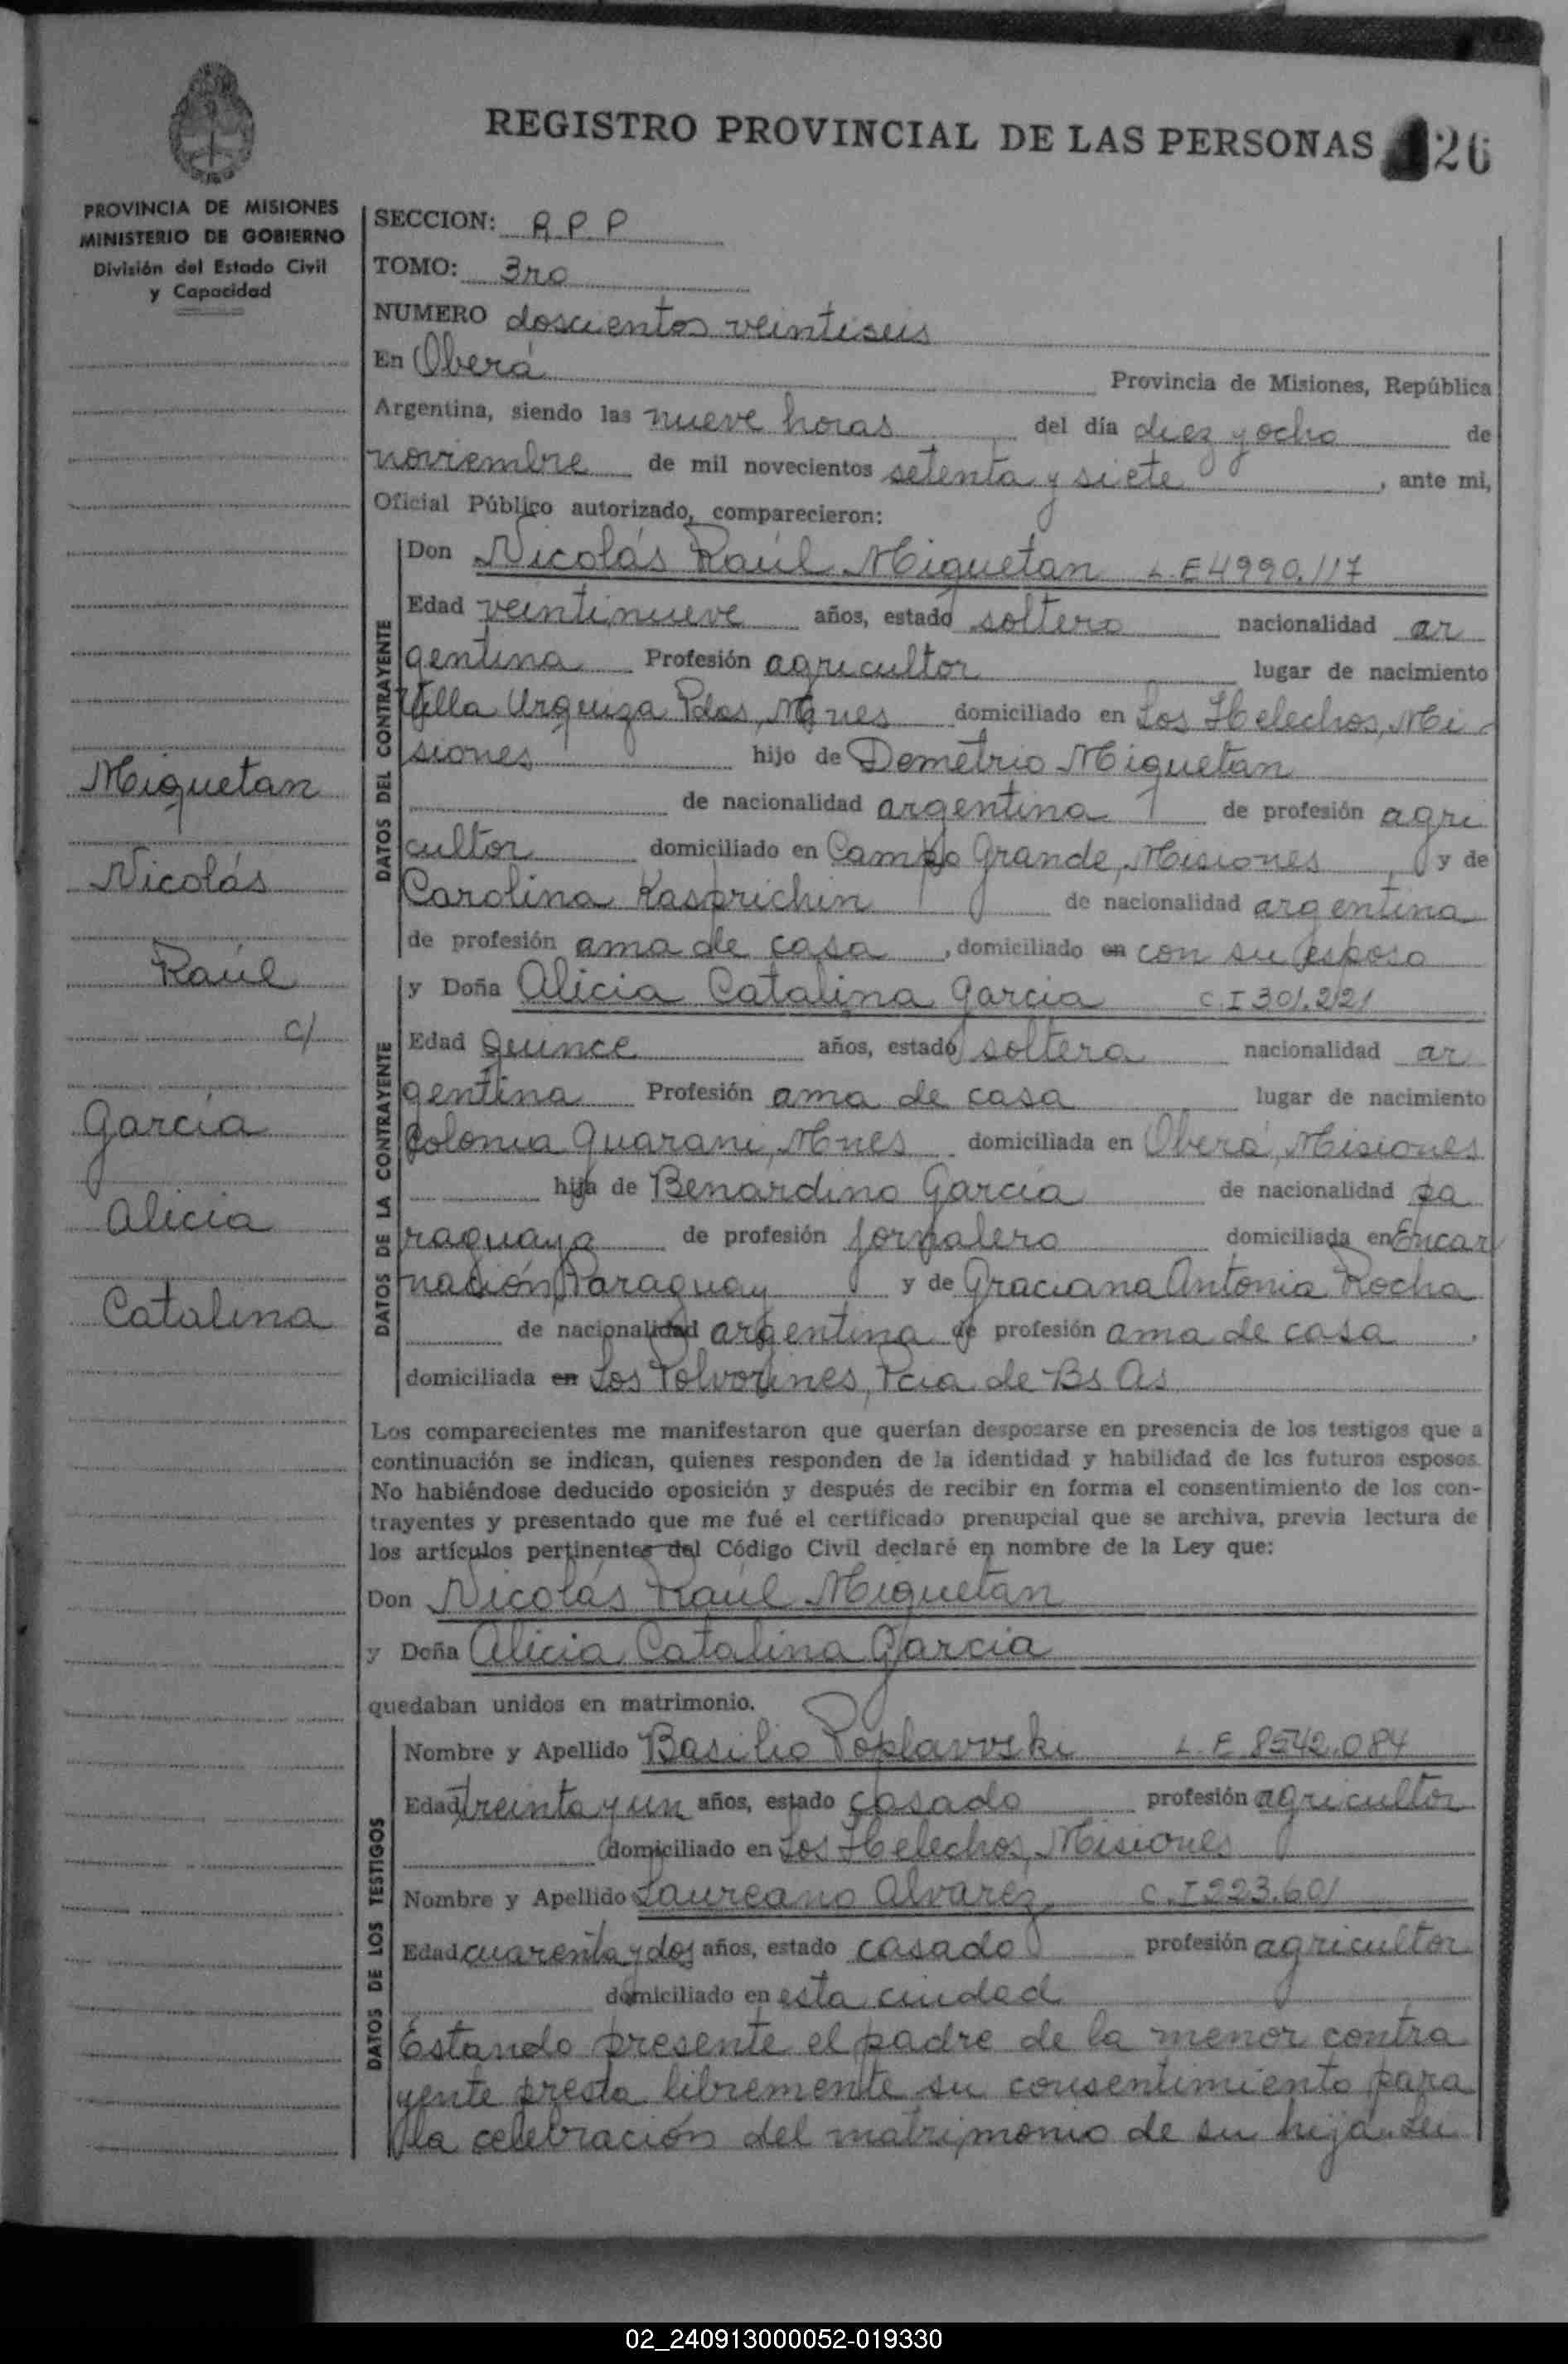 REGISTRO PROVINCIAL DE LAS PERSONAS 26
PROVINCIA DE MISIONES
MINISTERIO DE GOBIERNO
División del Estado Civil
y Capacidad
Miquetan
Nicolás
Raúl
c/
García
Alicia
Catalina
SECCION: R P P
TOMO: 3ro
NUMERO doscientos veintiseis
En Oberá Provincia de Misiones, República
Argentina, siendo las nueve horas del día diez y ocho de
noviembre de mil novecientos setenta y siete, ante mi,
Oficial Público autorizado, comparecieron:
DATOS DEL CONTRAYENTE
Don Nicolás Raúl Miquetan L.E 4990.117
Edad veintinueve años, estado soltero nacionalidad ar
gentina Profesión agricultor lugar de nacimiento
Villa Urquiza Pdas, Mnes domiciliado en Los Helechos, Mi
siones hijo de Demetrio Miquetan
de nacionalidad argentina de profesión agri
cultor domiciliado en Campo Grande, Misiones y de
Carolina Kasprichin de nacionalidad argentina
de profesión ama de casa, domiciliado en con su esposo
DATOS DE LA CONTRAYENTE
y Doña Alicia Catalina Garcia C.I 301.221
Edad Quince años, estado soltera nacionalidad ar
gentina Profesión ama de casa lugar de nacimiento
Colonia Guarani, Mnes domiciliada en Oberá, Misiones
hija de Benardino García de nacionalidad pa
raguaya de profesión jornalero domiciliada en Encar
nación, Paraguay y de Graciana Antonia Rocha
de nacionalidad argentina de profesión ama de casa,
domiciliada en Los Polvorines, Pcia de Bs As
Los comparecientes me manifestaron que querían desposarse en presencia de los testigos que a
continuación se indican, quienes responden de la identidad y habilidad de los futuros esposos.
No habiéndose deducido oposición y después de recibir en forma el consentimiento de los con-
trayentes y presentado que me fué el certificado prenupcial que se archiva, previa lectura de
los artículos pertinentes del Código Civil declaré en nombre de la Ley que:
Don Nicolás Raúl Miquetan
y Doña Alicia Catalina Garcia
quedaban unidos en matrimonio.
DATOS DE LOS TESTIGOS
Nombre y Apellido Basilio Poplavvski L.E 8542.084
Edad treinta y un años, estado casado profesión agricultor
domiciliado en Los Helechos, Misiones
Nombre y Apellido Laureano Alvarez C.I 223.601
Edad cuarenta y dos años, estado casado profesión agricultor
domiciliado en esta ciudad
Estando presente el padre de la menor contra
yente presta libremente su consentimiento para
la celebración del matrimonio de su hija. Lei
02_240913000052-019330